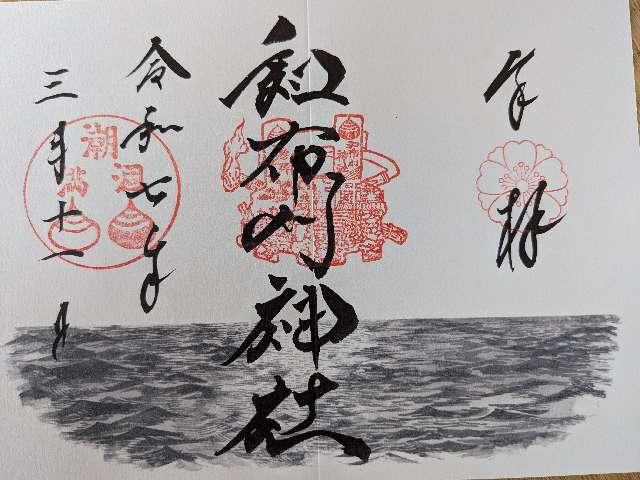 奉拝
和布刈神社
令和七年
三月十一日
潮
涸
満